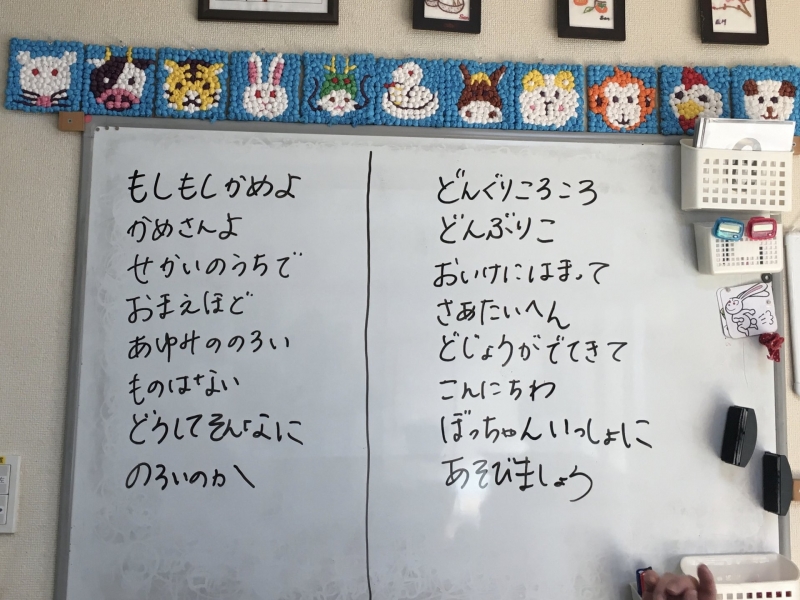 もしもしかめよ
かめさんよ
せかいのうちで
おまえほど
あゆみののろい
ものはない
どうしてそんなに
のろいのか\
どんぐりころころ
どんぶりこ
おいけにはまって
さあたいへん
どじょうがでてきて
こんにちわ
ぼっちゃんいっしょに
あそびましょう